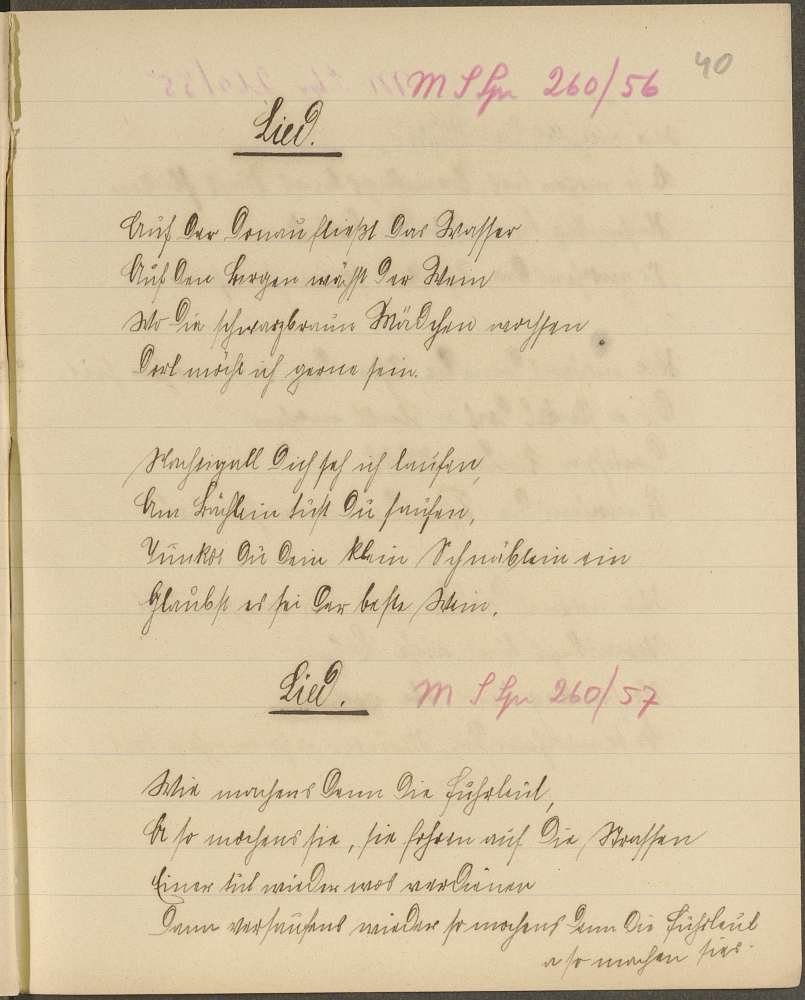 40
M S Gr 260/56
Lied.
Auf der Donau fließt das Wasser
Auf den Bergen wächst der Wein
Wo die schwarzbraun Mädchen wachsen
Dort möcht ich gerne sein.
Nachtigall Dich seh ich laufen,
Am Bächlein tust Du saufen,
Tunkst Du Dein klein Schnäblein ein
Glaubst es sei der beste Wein.
Lied. M S Gr 260/57
Wie machens denn die Fuhrleut,
A so machens sie, sie fahren auf die Strassen
Einer tut wieder was verdienen
Dann versaufens wieder so machens denn die Fuhrleut
a so machen sies.